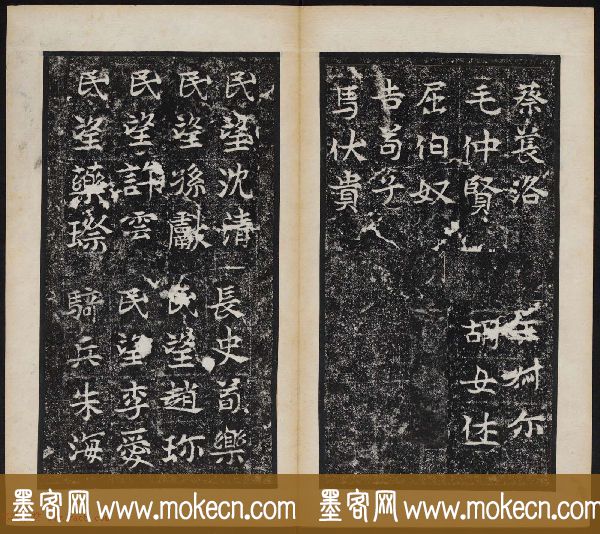 蔡莨洛
毛仲賢
屈伯奴
苟子
馬伏貴
胡女
民望沈清
民望孫獻
民望許雲
民望藥璨
長史荀樂
民望趙珎
民望李愛
騎兵朱海
墨客网 www.mokecn.com
墨客网 www.mokecn.com